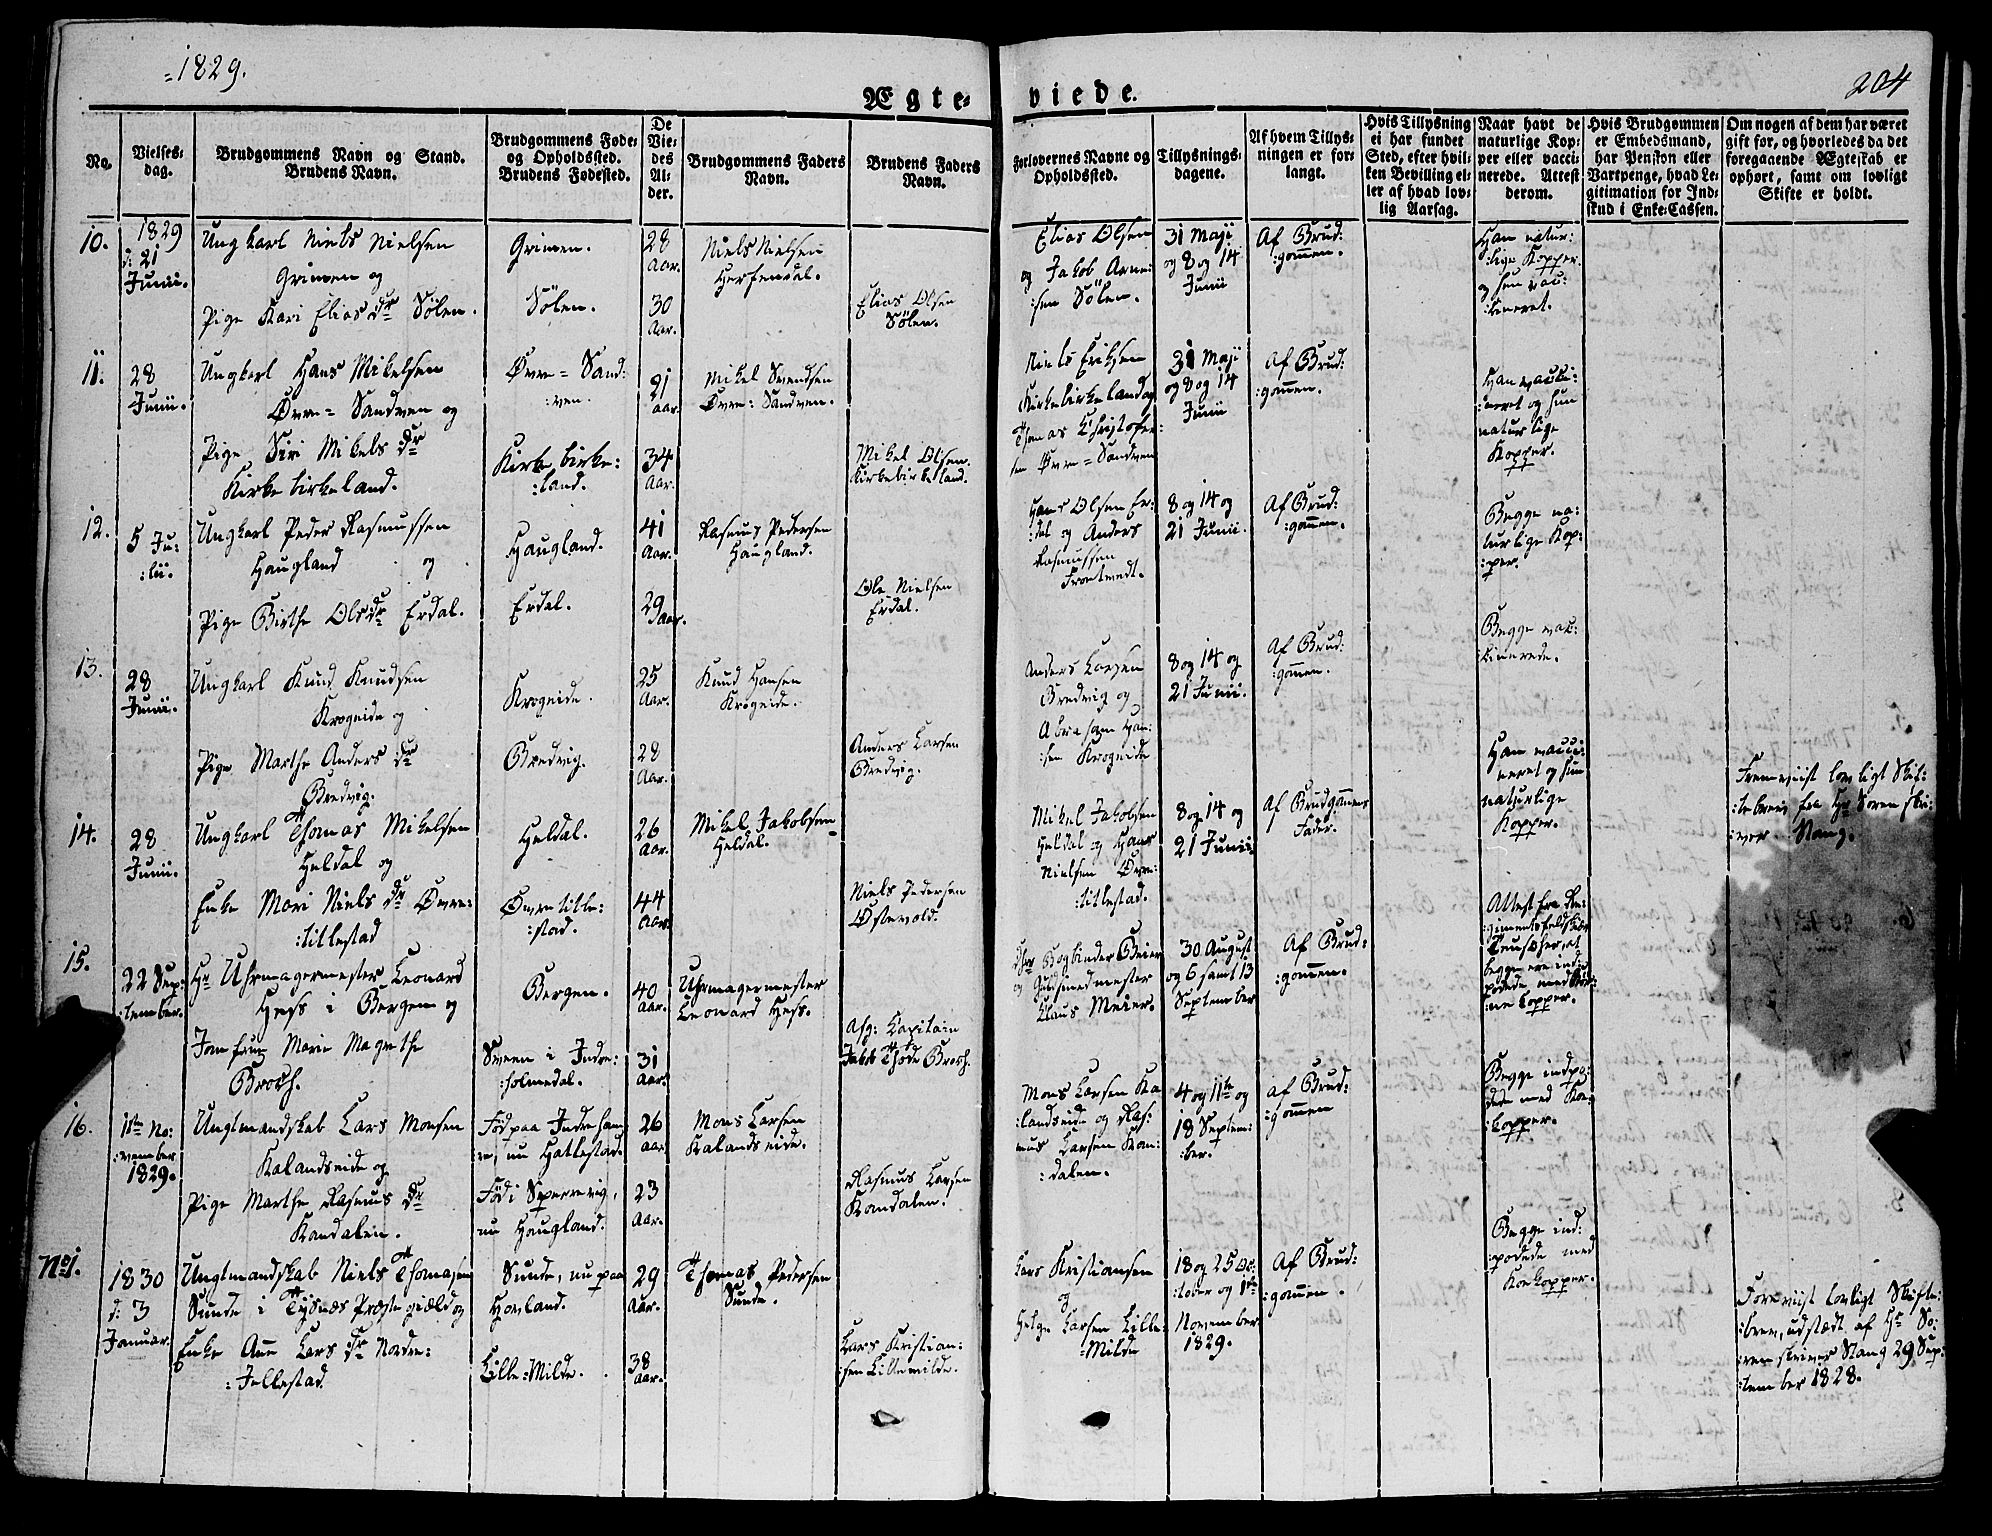 =1829.
204
Ægte=
viede.
No.
Vielses=
dag.
Brudgommens Navn og Stand.
Brudens Navn.
Brudgommens Føde=
og Opholdssted.
Brudens Fødested.
De
Vie=
des
Al=
der.
Brudgommens Faders
Navn.
Brudens Faders
Navn.
Forlovernes Navne og
Opholdssted.
Tillysnings=
dagene.
Af hvem Tillys=
ningen er for=
langt.
Hvis Tillysning
ei har fundet
Sted, efter hvil=
ken Bevilling el=
ler af hvad lov=
lig Aarsag.
Naar havt de
naturlige Kop=
per eller vacci=
nerede. Attest
derom.
Hvis Brudgommen
er Embedsmand,
har Pension eller
Vartpenge, hvad Le=
gitimation for Ind=
skud i Enke=Cassen.
Om nogen af dem har været
gift før, og hvorledes da det
foregaaende Ægteskab er
ophørt, samt om lovligt
Skifte er holdt.
10.
1829
d: 21
Junii.
Ungkarl Niels Nielsen
Grimen og
Pige Kari Elias dr Sölen.
Grimen.
Sölen.
28
Aar.
30
Aar.
Niels Nielsen
Herfendal.
Elias Olsen
Sölen.
Elias Olsen
og Jakob Arne:
:sen Sölen.
31 Maji
og 8 og 14
Junii
Af Brud:
:gommen.
Han natur:
:lige Kopper
og hun vac:
:cineret.
11.
28
Junii.
Ungkarl Hans Mikelsen
Øvre= Sandven og
Pige Siri Mikels dr
Kirkebirkeland.
Øvre= Sand:
:ven.
Kirkebirke:
:land.
21
aar.
34
Aar.
Mikel Svendsen
Øvre= Sandven.
Mikel Olsen
Kirkebirkeland.
Niels Eriksen
Kirkebirkeland og
Thomas Christofer:
sen Øvre= Sandven
31 Maji
og 8 og 14
Junii
Af Brud:
:gommen.
Han vacci:
:neret og hun
naturlige
Kopper.
12.
5 Ju:
:lii.
Ungkarl Peder Rasmussen
Haugland og
Pige Birthe Olsdr Erdal.
Haugland.
Erdal.
41
Aar.
29
Aar.
Rasmus Pedersen
Haugland.
Ole Nielsen
Erdal.
Hans Olsen Er:
:dal og Anders
Rasmussen
8 og 14 og
21 Junii.
Af Brud:
:gommen.
Begge na:
turlige Kop:
:per.
13.
28
Junii.
Ungkarl Knud Knudsen
Krogeide og
Pige Marthe Anders dr
Bredvig.
Krogeide.
Bredvig.
25
Aar.
28
Aar.
Knud Hansen
Krogeide.
Anders Larsen
Bredvig.
Anders Larsen
Bredvig og
Abraham Han:
:sen Krogeide
8 og 14 og
21 Junii.
Af Brud:
:gommen.
Begge vac:
:cinerede.
14.
28
Junii.
Ungkarl Thomas Mikelsen
Heldal og
Enke Mari Niels dr Øvre:
:titlestad
Heldal.
Øvretitle:
:stad.
26
Aar.
44
Aar.
Mikel Jakobsen
Heldal.
Niels Pedersen
Østevold.
Mikel Jakobsen
Heldal og Hans
Nielsen Øvre:
:titlestad.
8 og 14 og
21 Junii.
Af Brudgommens
Fader.
Han vacci:
neret og hun
naturlige
Kopper.
Fremviist lovligt Skif:
:tebrev fra Hr Sorenskri:
:ver Stang.
15.
22 Sep:
:tember.
Hr Uhrmagermester Leonard
Hess i Bergen og
Jomfrue Marie Magrethe
Broch.
Bergen.
Sveen i Indre:
:holmedal.
40
Aar.
31
Aar.
Uhrmagermester
Leonard Hess.
Afg: Capitain
Jakob Thode Broch.
Dhrr Bogbinder Beier
og Guldsmedmester
Claus Meier.
30 August
og 6 samt 13
September
Af Brud:
:gommen.
Attest fra Re:
gimentsfeldskiær
begge ere ind:
podede med Koe:
:ne kopper.
16.
11te No:
:vember
1829.
Ungtmandskab Lars Monsen
Kalandseide og
Pige Marthe Rasmus dr
Kandalen.
Föd paa
nu Hattestad.
Föd i
nu Haugland.
26
aar
23
Aar.
Mons Larsen
Kalandseide.
Rasmus Larsen
Kandalen.
Mons Larsen Ka:
:landseide og Ras:
mus Larsen Kan:
:dalen.
4 og 11te og
18 Septem:
:ber.
af Brud:
:gommen
Begge indpo:
dede med Koe:
:kopper.
No 1.
1830
d: 3
Januar.
Ungtmandskab Niels Thomasen
Sunde i Tysnæs Præstegiæld og
Enke Ane Lars dr Nordre:
:Jellestad.
Sunde, nu paa
Hopland.
Lille=Milde.
29
Aar.
38
Aar.
Thomas Pedersen
Sunde.
Lars Kristian:
:sen Lillemilde.
Lars Kristiansen
og
Helge Larsen Lille:
=Milde
18 og 25 Oc:
:tober og 1ste
November
1829.
Af Brud:
:gommen.
Begge ind:
podede med
Koekopper.
Foreviist lovligt Skifte:
:brev, udstædt af Hr So:
renskriver Stang 29 Sep:
:tember 1828.